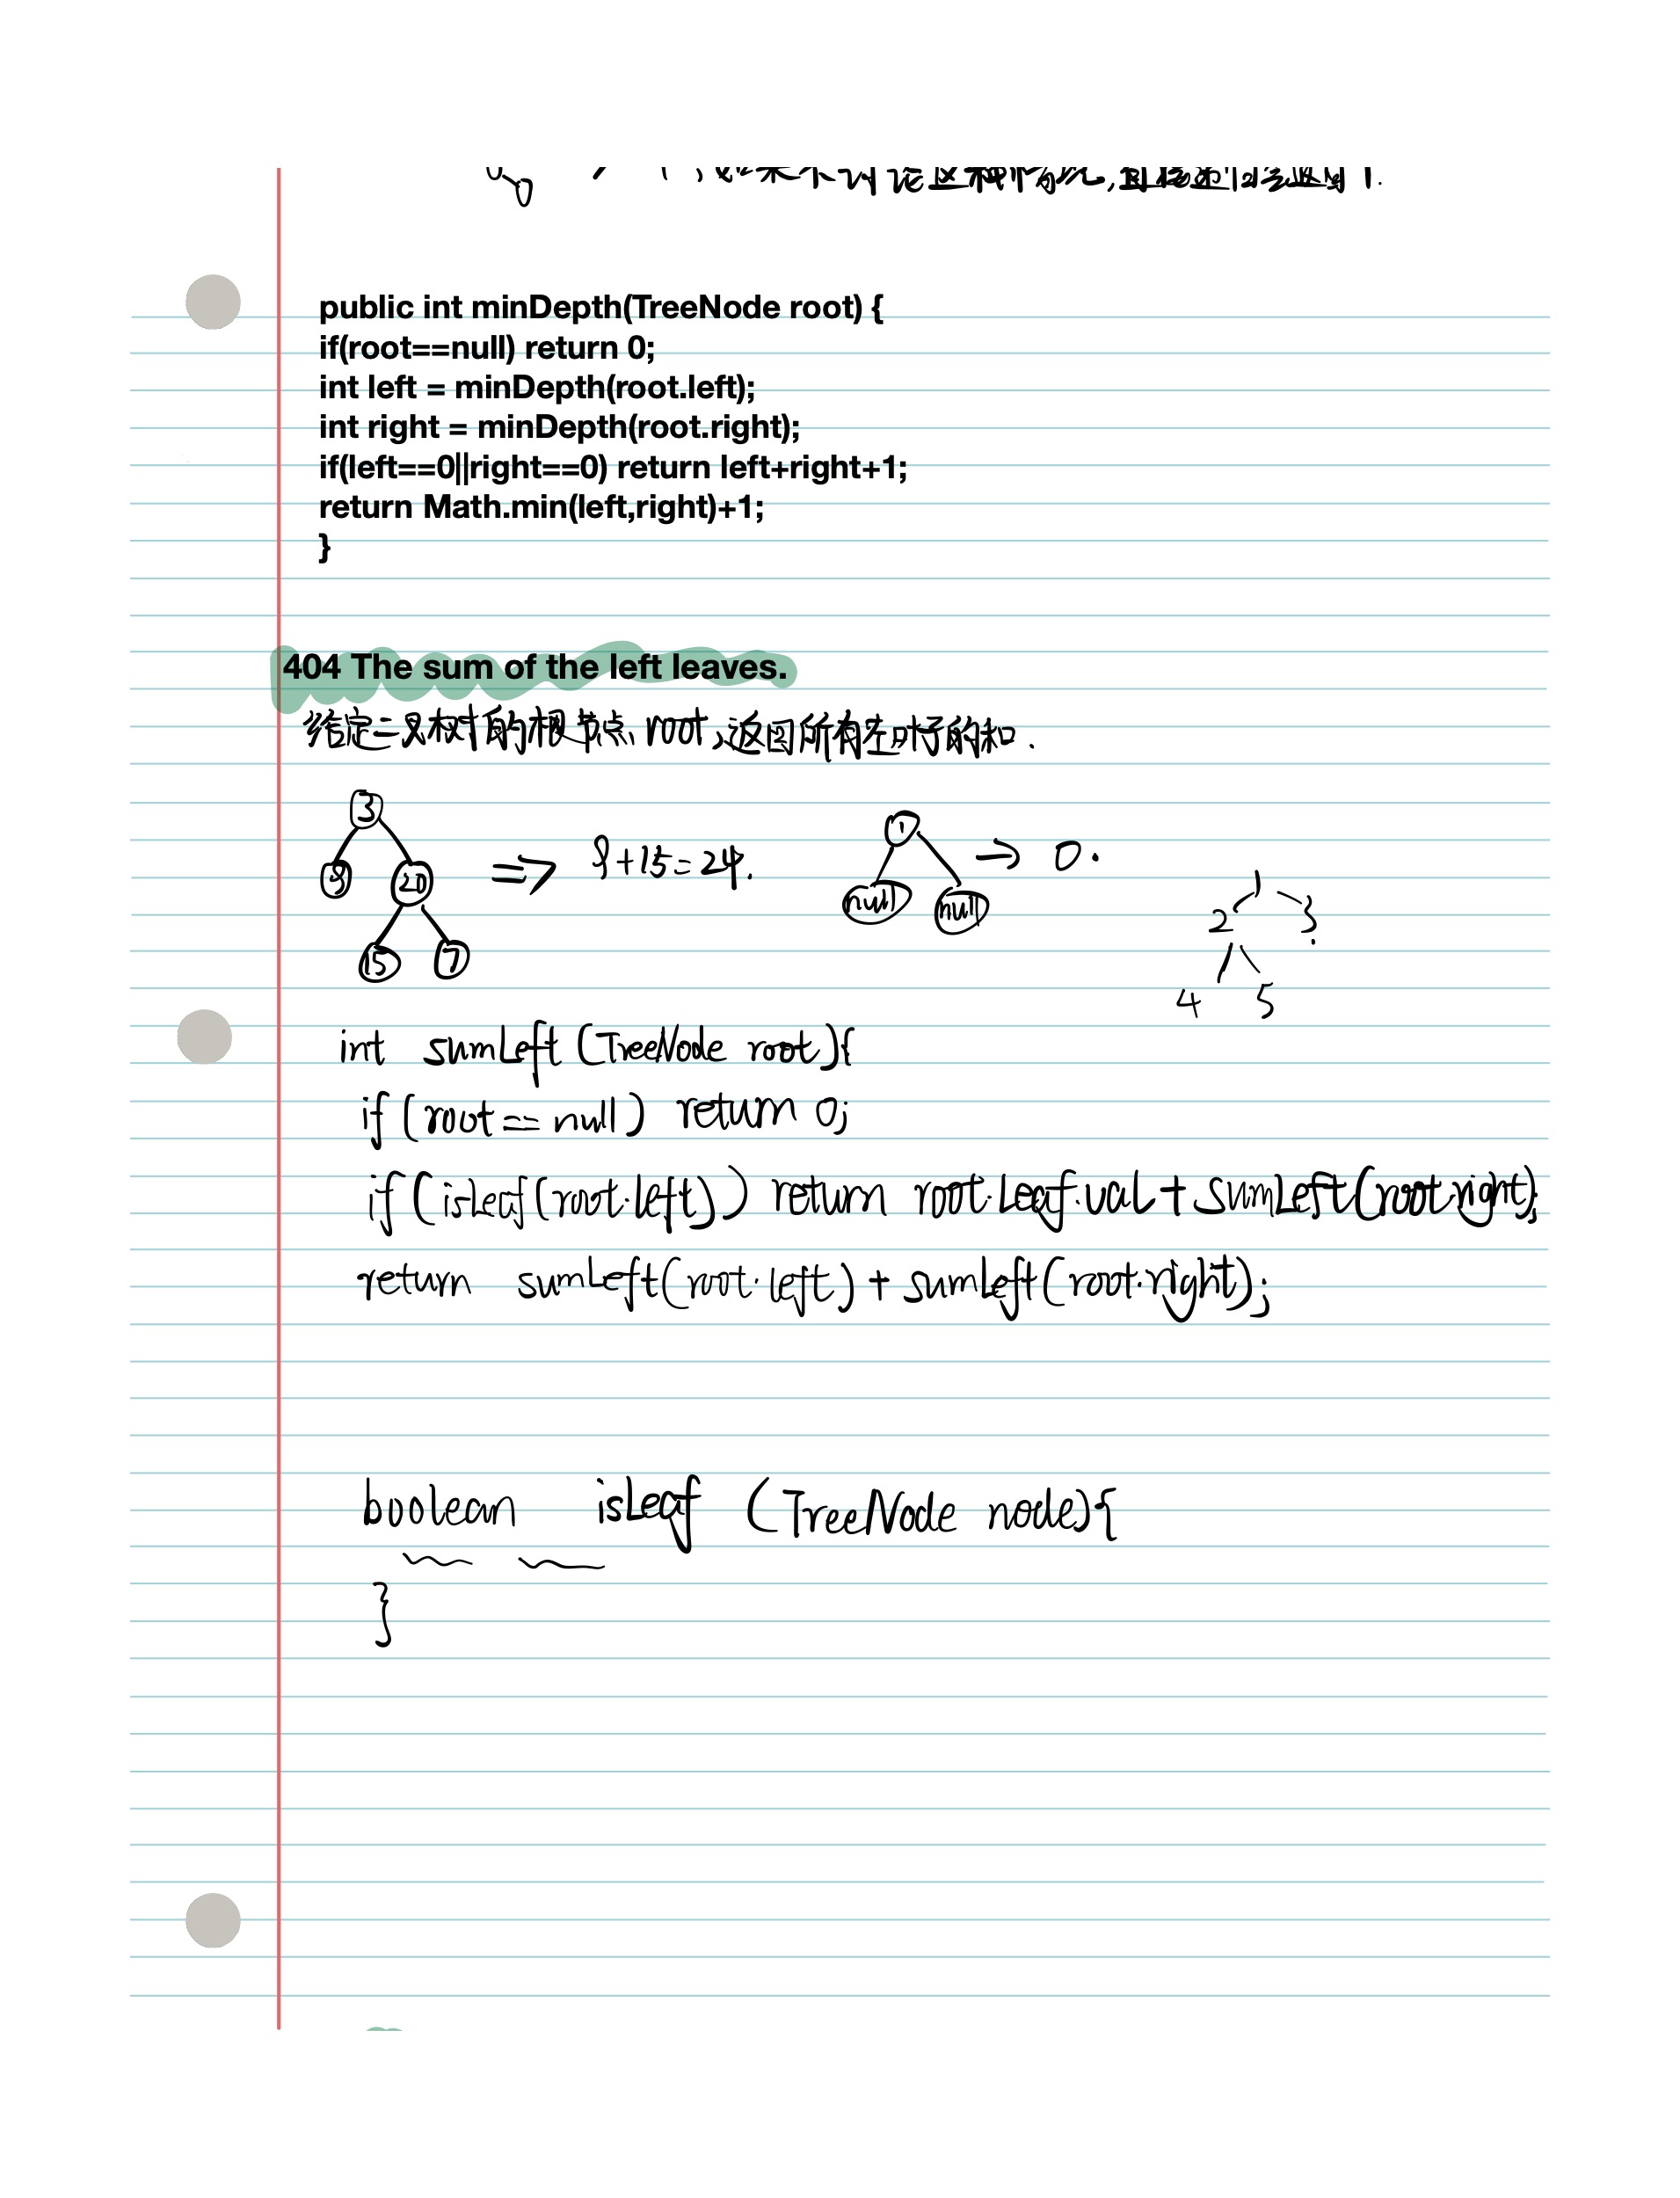 public int minDepth(TreeNode root) {
if(root==null) return 0;
int left = minDepth(root.left);
int right = minDepth(root.right);
if(left==0||right==0) return left+right+1;
return Math.min(left,right)+1;
}
404 The sum of the left leaves.
给定二叉树的根节点 root,返回所有左叶子的和.
3
9 20 ⇒ 9+15=24.
15 7
1 → 0.
null null
1
2 3
4 5
int sumLeft (TreeNode root){
if (root == null) return 0;
if (isLeaf(root.left)) return root.Leaf.val + SumLeft(root.right);
return sumLeft(root.left) + sumLeft(root.right);
boolean isLeaf (TreeNode node){
}